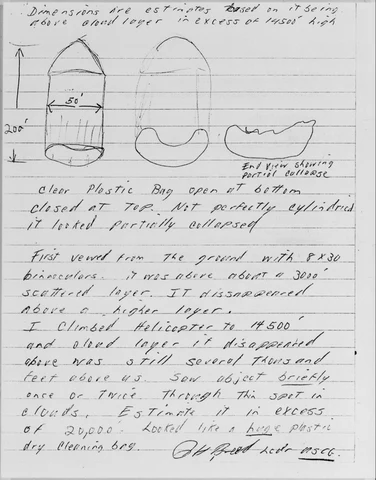 Dimensions are estimates based on it being
above cloud layer in excess of 14500' high
50'
200'
End View showing
partial collapse
Clear Plastic Bag open at bottom
closed at top. Not perfectly cylindrical
it looked partially collapsed
First vewed from the ground with 8x30
binoculars. it was above about a 3000'
scattered layer. IT dissappeared
above a higher layer.
I Climbed Helicopter to 14500'
and cloud layer it disappeared
above was still several thousand
feet above us. Saw object briefly
once or twice through thin spot in
clouds. Estimate it in excess
of 20,000'. Looked like a huge plastic
dry cleaning bag. Lcdr USCG.